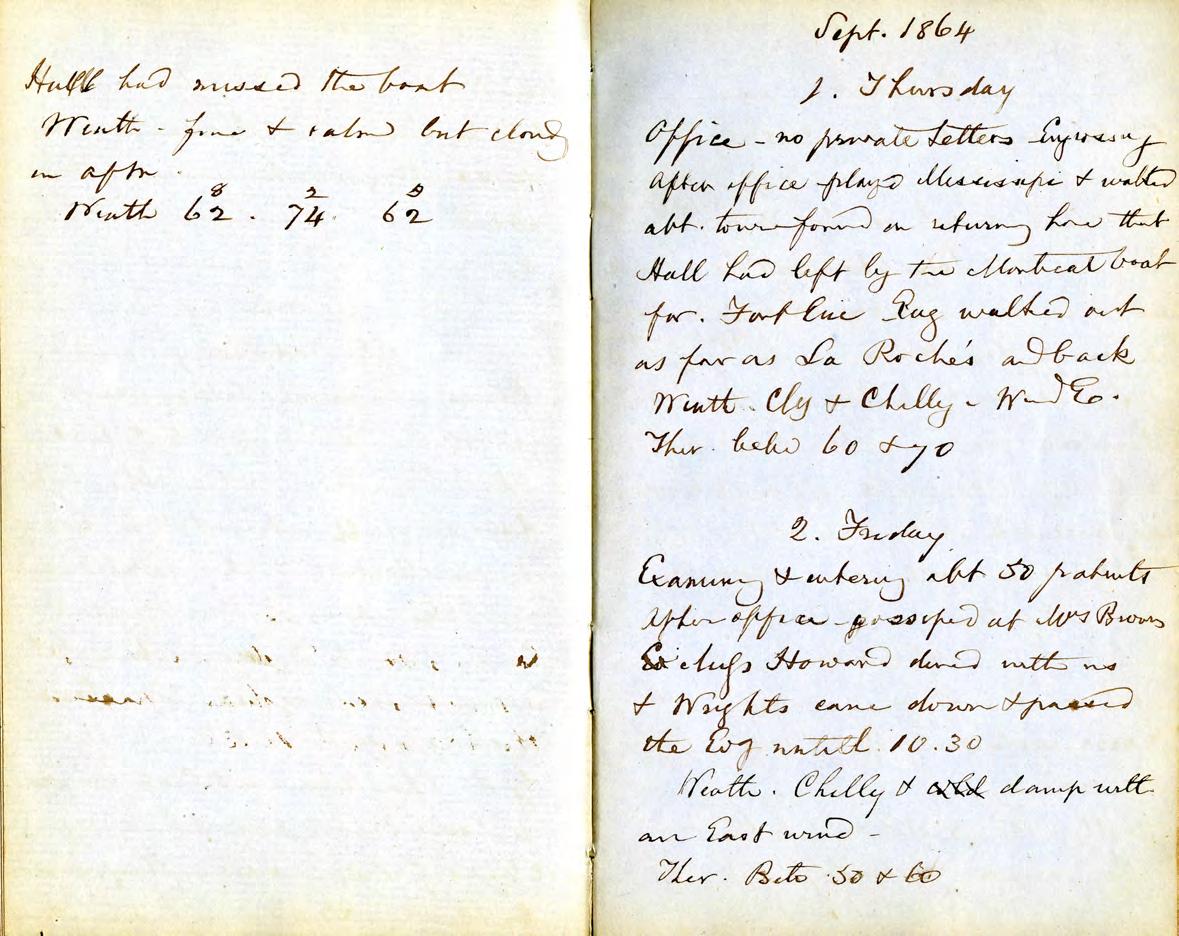 Hall had missed the boat
Weath - fine & calm but cloudy
in aftn.
8 2 9
Weath 62. 74. 62
Sept. 1864
1. Thursday
Office - no private Letters Engrossing
After office played Mississipi & walked
abt. town found on returning home that
Hall had left by the Montreal boat
for. Fort Erie Eug walked out
as far as La Roche's and back
Weath. Cldy & Chilly - Wind E.
Ther. betw 60 & 70
2. Friday
Examing & entering abt 50 patents
After office - gossiped at Mrs Browns
Howard dined with us
& Wrights came down & passed
the Evg untill 10.30
Weath. Chilly & cold damp with
an East wind -
Ther. Bets 50 & 60